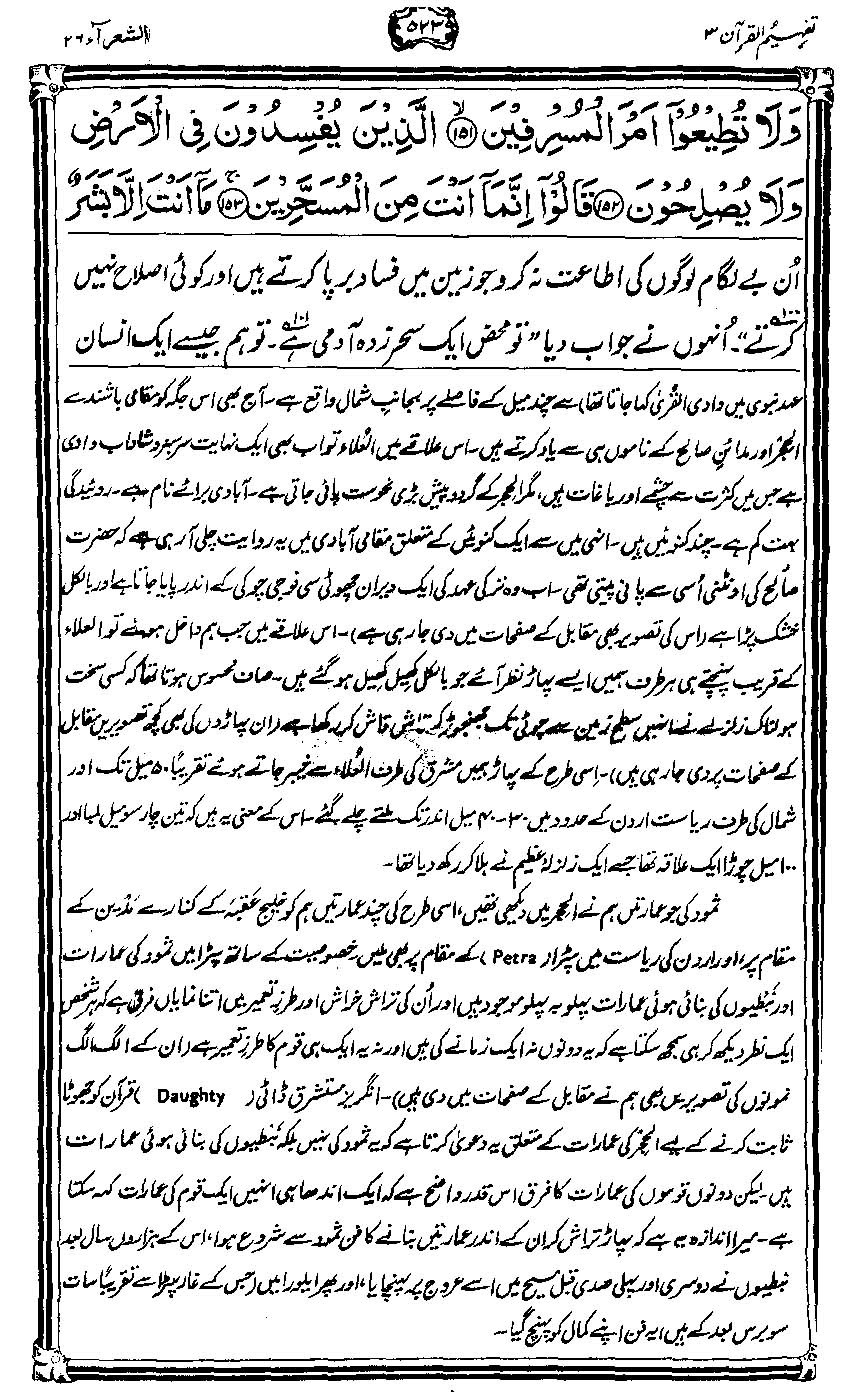 تفہیم القرآن ۳
۵۲۳
الشعرآء ۲۶
وَلَا تُطِيعُوْٓا اَمْرَ الْمُسْرِفِيْنَ ﴿۱۵۱﴾ الَّذِيْنَ يُفْسِدُوْنَ فِى الْاَرْضِ
وَلَا يُصْلِحُوْنَ ﴿۱۵۲﴾ قَالُوْٓا اِنَّمَآ اَنْتَ مِنَ الْمُسَحَّرِيْنَ ﴿۱۵۳﴾ مَآ اَنْتَ اِلَّا بَشَرٌ
اُن بے لگام لوگوں کی اطاعت نہ کرو جو زمین میں فساد برپا کرتے ہیں اور کوئی اصلاح نہیں
کرتے۱۰۰“۔ اُنہوں نے جواب دیا ”تو محض ایک سحر زدہ آدمی ہے۱۰۱۔ تو ہم جیسے ایک انسان
عہد نبوی میں وادی القریٰ کہا جاتا تھا) سے چند میل کے فاصلے پر بجانبِ شمال واقع ہے۔ آج بھی اس جگہ کو مقامی باشندے
الحجر اور مدائنِ صالح کے ناموں ہی سے یاد کرتے ہیں۔ اس علاقے میں العُلاء تو اب بھی ایک نہایت سرسبز و شاداب وادی
ہے جس میں کثرت سے چشمے اور باغات ہیں، مگر الحجر کے گرد و پیش بڑی نحوست پائی جاتی ہے۔ آبادی برائے نام ہے۔ روئیدگی
بہت کم ہے۔ چند کنوئیں ہیں۔ انہی میں سے ایک کنوئیں کے متعلق مقامی آبادی میں یہ روایت چلی آ رہی ہے کہ حضرت
صالح کی اونٹنی اُسی سے پانی پیتی تھی۔ اب وہ ترکی عہد کی ایک ویران چھوٹی سی فوجی چوکی کے اندر پایا جاتا ہے اور بالکل
خشک پڑا ہے (اس کی تصویر بھی مقابل کے صفحات میں دی جا رہی ہے)۔ اس علاقے میں جب ہم داخل ہوئے تو العلاء
کے قریب پہنچتے ہی ہر طرف ہمیں ایسے پہاڑ نظر آئے جو بالکل کھیل کھیل ہو گئے ہیں۔ صاف محسوس ہوتا تھا کہ کسی سخت
ہولناک زلزلے نے انہیں سطح زمین سے چوٹی تک جھنجھوڑ کر قاش قاش کر رکھا ہے (ان پہاڑوں کی بھی کچھ تصویریں مقابل
کے صفحات پر دی جا رہی ہیں)۔ اِسی طرح کے پہاڑ ہمیں مشرق کی طرف العُلاء سے خیبر جاتے ہوئے تقریبًا ۵۰ میل تک اور
شمال کی طرف ریاست اردن کے حدود میں ۳۰-۴۰ میل اندر تک ملتے چلے گئے۔ اس کے معنی یہ ہیں کہ تین چار سو میل لمبا اور
۱۰۰ میل چوڑا ایک علاقہ تھا جسے ایک زلزلۂ عظیم نے ہلا کر رکھ دیا تھا۔
ثمود کی جو عمارتیں ہم نے الحجر میں دیکھی تھیں، اسی طرح کی چند عمارتیں ہم کو خلیج عَقَبَہ کے کنارے مَدْیَن کے
مقام پر، اور اردن کی ریاست میں پٹرا (Petra) کے مقام پر بھی ملیں۔ خصوصیت کے ساتھ پٹرا میں ثمود کی عمارات
اور نَبطیوں کی بنائی ہوئی عمارات پہلو بہ پہلو موجود ہیں اور اُن کی تراش خراش اور طرزِ تعمیر میں اتنا نمایاں فرق ہے کہ ہر شخص
ایک نظر دیکھ کر ہی سمجھ سکتا ہے کہ یہ دونوں نہ ایک زمانے کی ہیں اور نہ یہ ایک ہی قوم کا طرزِ تعمیر ہے (ان کے الگ الگ
نمونوں کی تصویریں بھی ہم نے مقابل کے صفحات میں دی ہیں)۔ انگریز مستشرق ڈاٹی (Daughty) قرآن کو جھوٹا
ثابت کرنے کے لیے الحجر کی عمارات کے متعلق یہ دعویٰ کرتا ہے کہ یہ ثمود کی نہیں بلکہ نَبطیوں کی بنائی ہوئی عمارات
ہیں۔ لیکن دونوں قوموں کی عمارات کا فرق اس قدر واضح ہے کہ ایک اندھا ہی انہیں ایک قوم کی عمارات کہہ سکتا
ہے۔ میرا اندازہ یہ ہے کہ پہاڑ تراش کر ان کے اندر عمارتیں بنانے کا فن ثمود سے شروع ہوا، اس کے ہزاروں سال بعد
نبطیوں نے دوسری اور پہلی صدی قبل مسیح میں اسے عروج پر پہنچایا، اور پھر ایلورا میں (جس کے غار پٹرا سے تقریبًا سات
سو برس بعد کے ہیں) یہ فن اپنے کمال کو پہنچ گیا۔